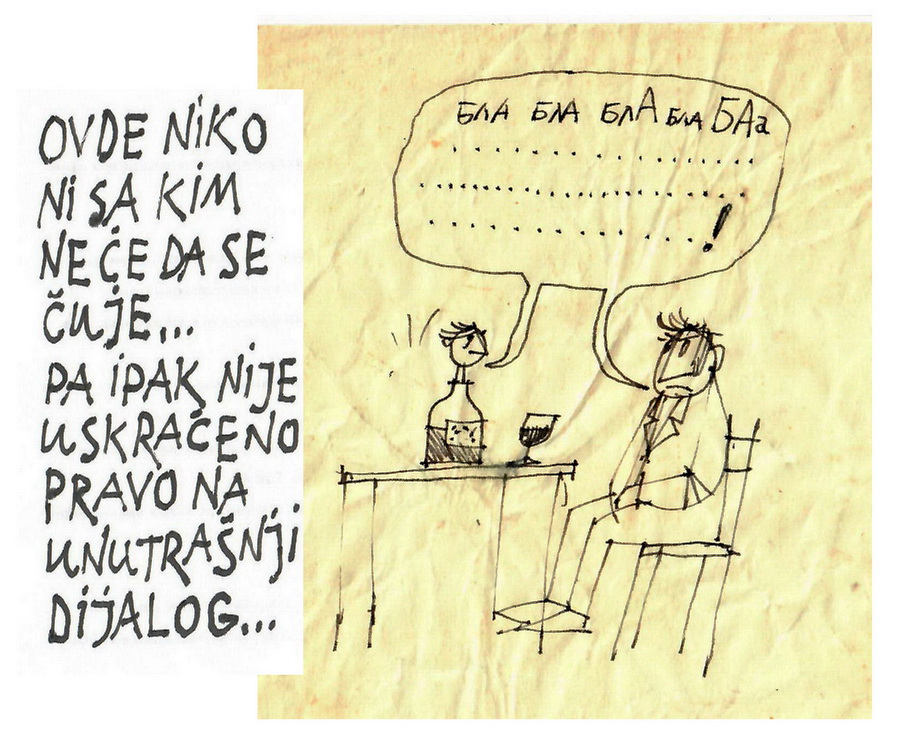 OVDE NiKO
Ni SA KiM
NEĆE DA SE
ČUJE...
PA iPAK NiJE
USKRAĆENO
PRAVO NA
UNUTRAŠNJi
DiJALOG...
БЛА БЛА БЛА БЛА БАа
!